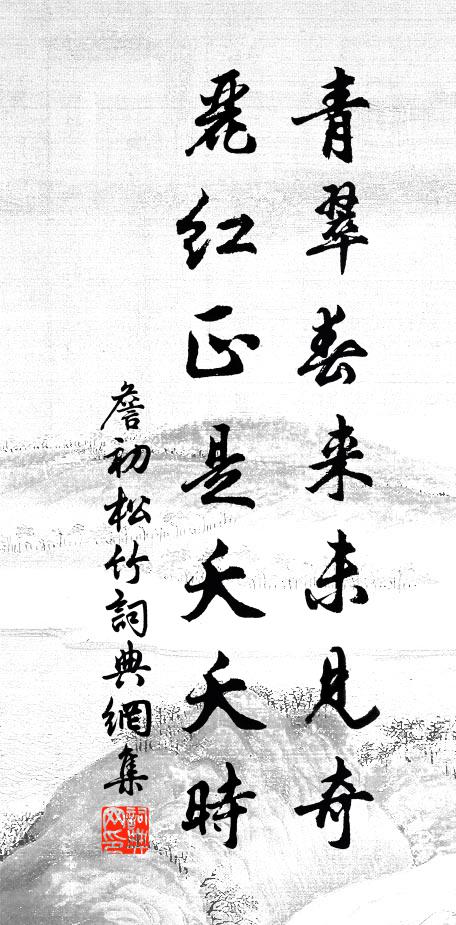 青翠春来未見奇
麗红正是夭夭時
詹初松竹詞典網集
詞典网印